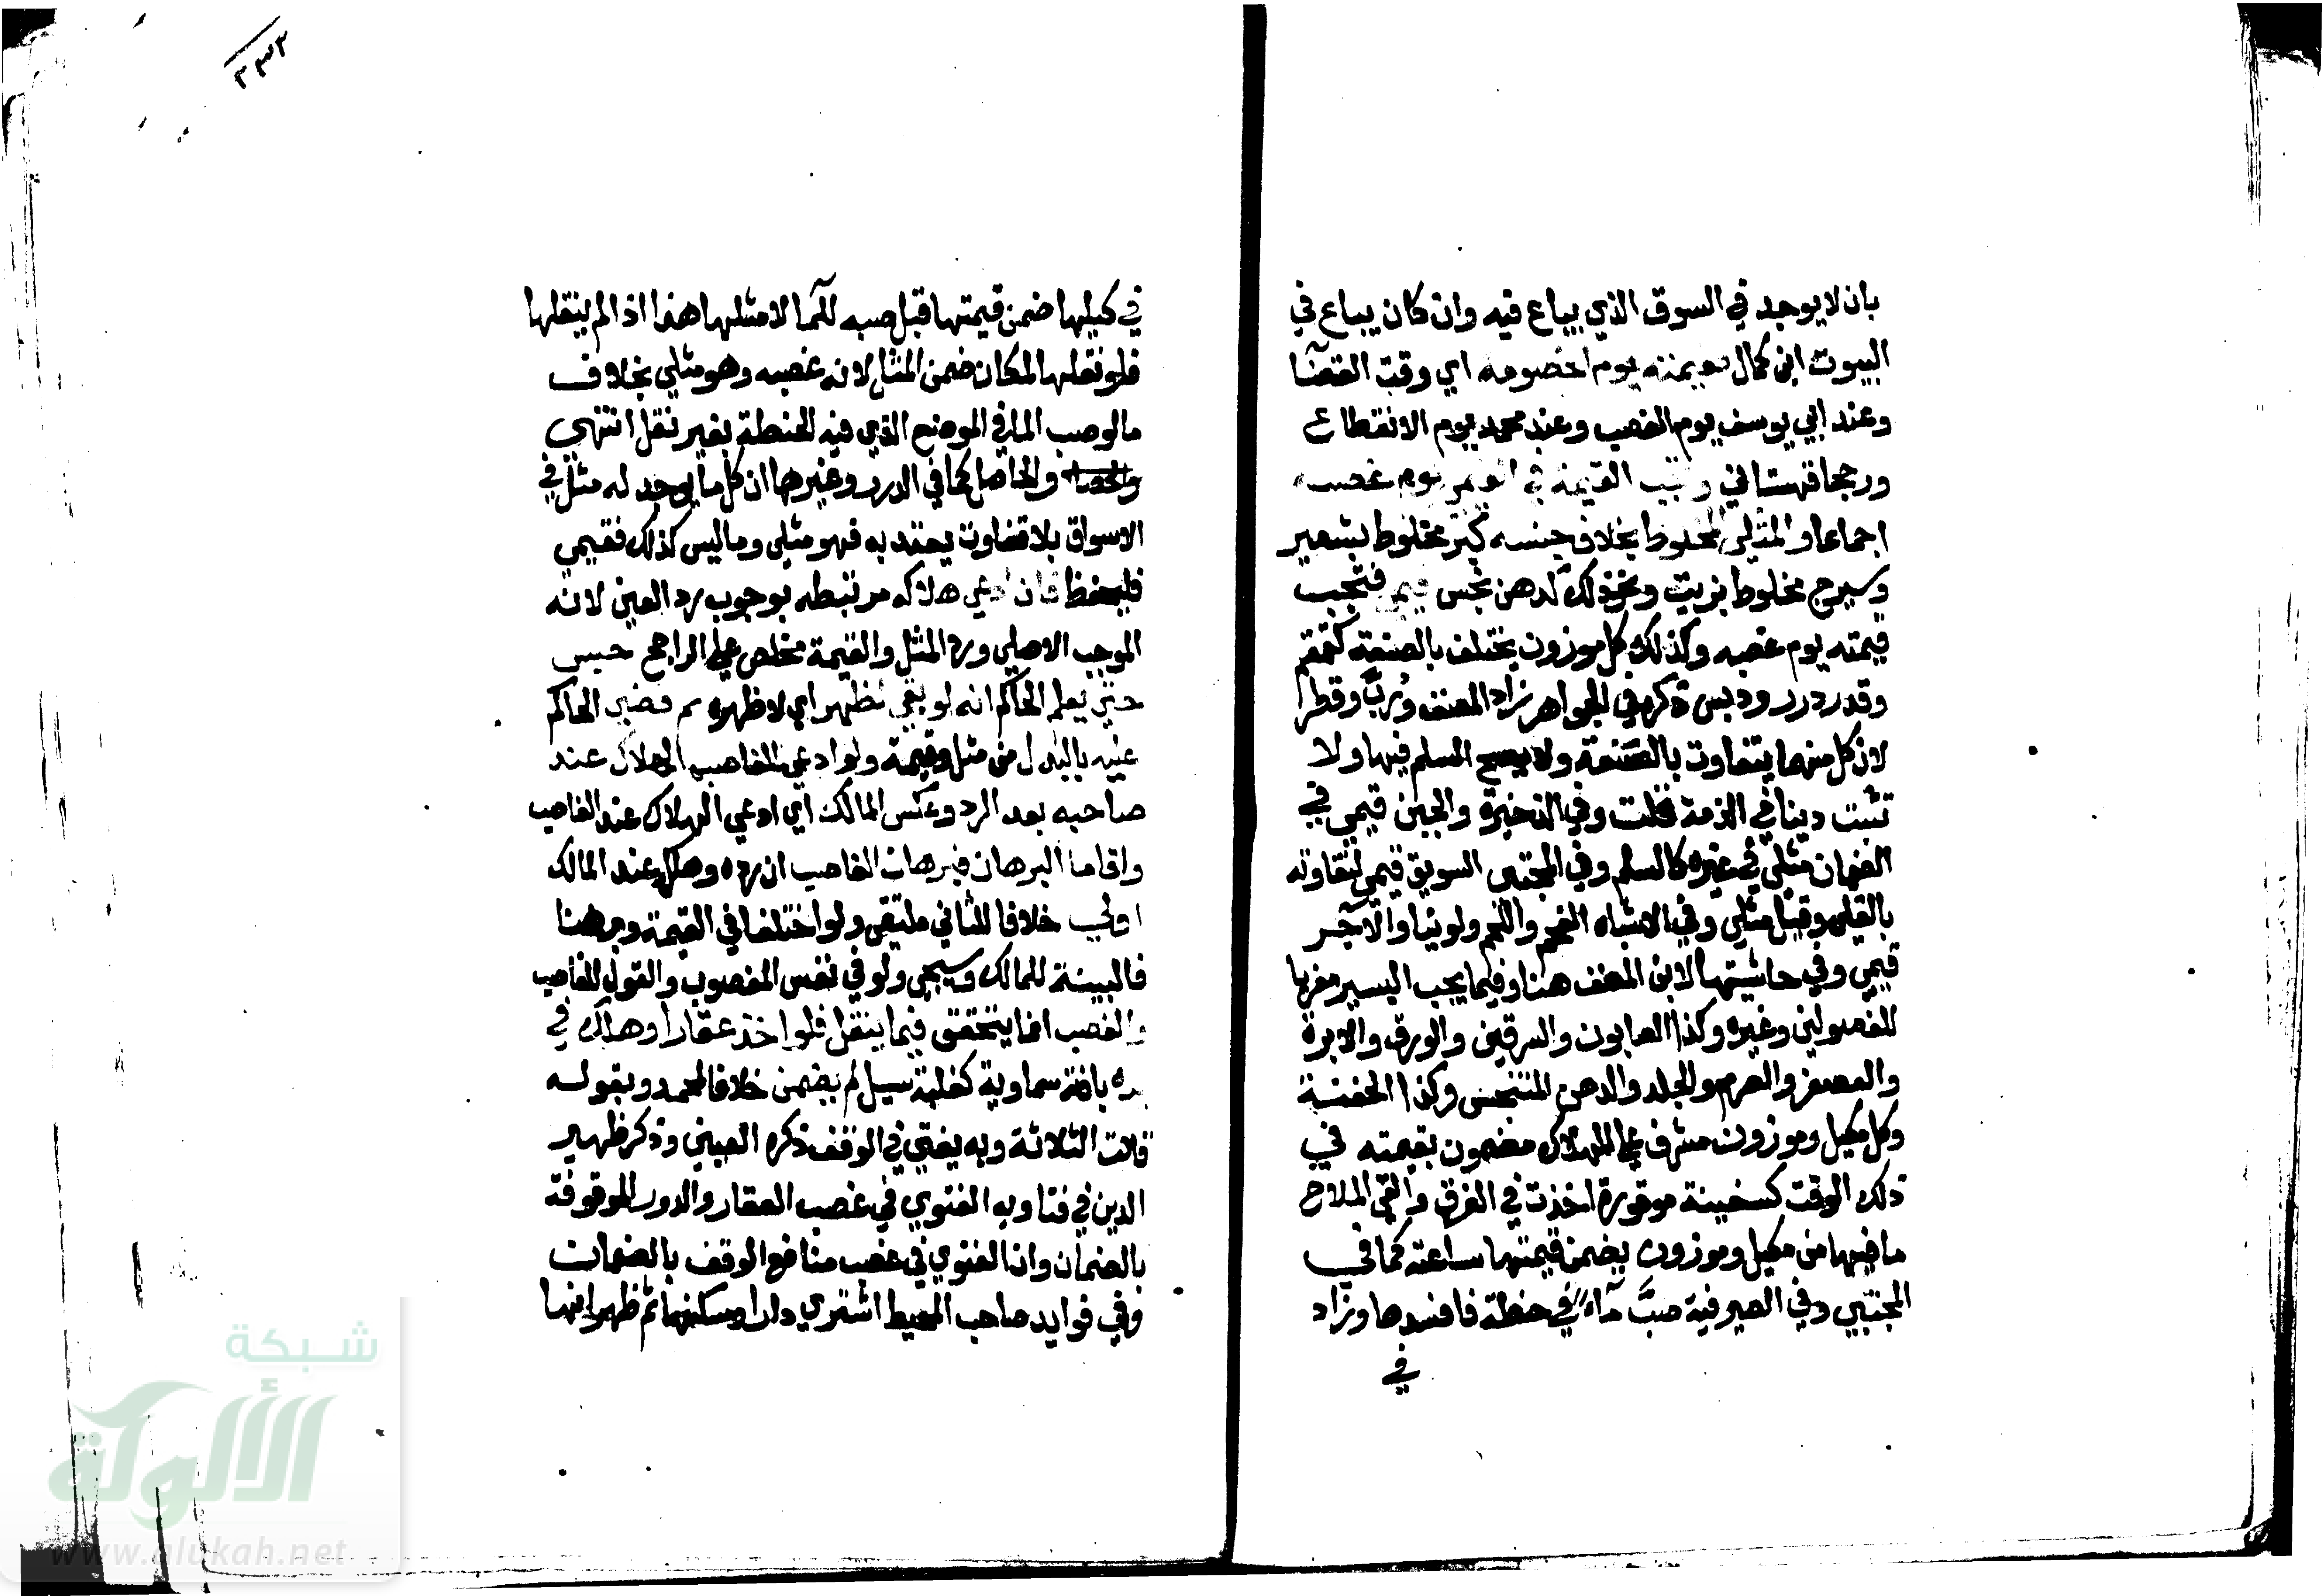 بان لا يوجد في السوق الذي يباع فيه وان كان يباع في
البيوت ابن كمال يوم الخصومه اي وقت القضا
وعند ابي يوسف يوم الغصب وعند محمد يوم الانقطاع
ورجحا قهستاني وتجب القيمة في القيمي يوم غصبه
اجماعا والمثلي المخلوط بخلاف جنسه كبر مخلوط بشعير
وسيرج مخلوط بزيت ونحو ذلك كدهن نجس قيمي فتجب
قيمته يوم غصبه وكذلك كل موزون يختلف بالصنعة كقمقم
وقدر درر ودبس ذكره في الجواهر زاد المصنف ورب وقطر
لان كل منهما يتفاوت بالصنعة ولا يصح السلم فيها ولا
تثبت دينا في الذمة قلت وفي الذخيرة والجبن قيمي في
الضمان مثلي في غيره كالسلم وفي المجتبى السويق قيمي لتفاوته
بالقلي وقيل مثلي وفي الاشباه الفحم واللحم ولو نيا والآجر
قيمي وفي حاشيتها لابن المصنف هنا وفيما يجلب اليسير معزيا
للفصولين وغيره وكذا الصابون والسرقين والورق والابرة
والعصفر والصرم والجلد والدهن المتنجس وكذا الحفنة
وكل مكيل وموزون مشرف على الهلاك مضمون بقيمته في
ذلك الوقت كسفينة موقورة اخذت في الغرق والقى الملاح
ما فيها من مكيل وموزون يضمن قيمتها ساعته كما في
المجتبي وفي الصيرفية صب ماء في حنطة فافسدها وزاد
في
٢٣٢
في كيلها ضمن قيمتها قبل صبه للما لا مثلها هذا اذا لم ينقلها
فلو نقلها لمكان ضمن المثل لانه غصبه وهو مثلي بخلاف
ما لو صب الما في الموضع الذي فيه الحنطة بغير نقل انتهى
والحاصل كما في الدرر وغيرها ان كل ما يوجد له مثل في
الاسواق بلا تفاوت يعتد به فهو مثلي وما ليس كذلك فقيمي
فليحفظ فان ادعي هلاكه مرتبطه بوجوب رد العين لانه
الموجب الاصلي ورد المثل والقيمة مخلص على الراجح حبس
حتى يعلم الحاكم انه لو بقي لظهر اي لاظهره ثم قضى الحاكم
عليه بالبدل من مثل وقيمة ولو ادعى الغاصب الهلاك عند
صاحبه بعد الرد وعكس المالك اي ادعي الهلاك عند الغاصب
واقاما البرهان فبرهان الغاصب انه رده وهلك عند المالك
اولى خلافا للثاني ملتقى ولو اختلفا في القيمة وبرهنا
فالبينة للمالك وسيجي ولو في نفس المغصوب والقول للغاصب
والغصب انما يتحقق فيما ينقل فلو اخذ عقارا وهلك في
يده بافة سماوية كغلبة سيل لم يضمن خلافا لمحمد وبقوله
قالت الثلاثة وبه يفتي في الوقف ذكره العيني وذكر ظهير
الدين في فتاويه الفتوي في غصب العقار والدور الموقوفة
بالضمان وان الفتوي في غصب منافع الوقف بالضمان
وفي فوايد صاحب المحيط اشتري دارا وسكنها ثم ظهر انها
شبكة
الألوكة
www.alukah.net